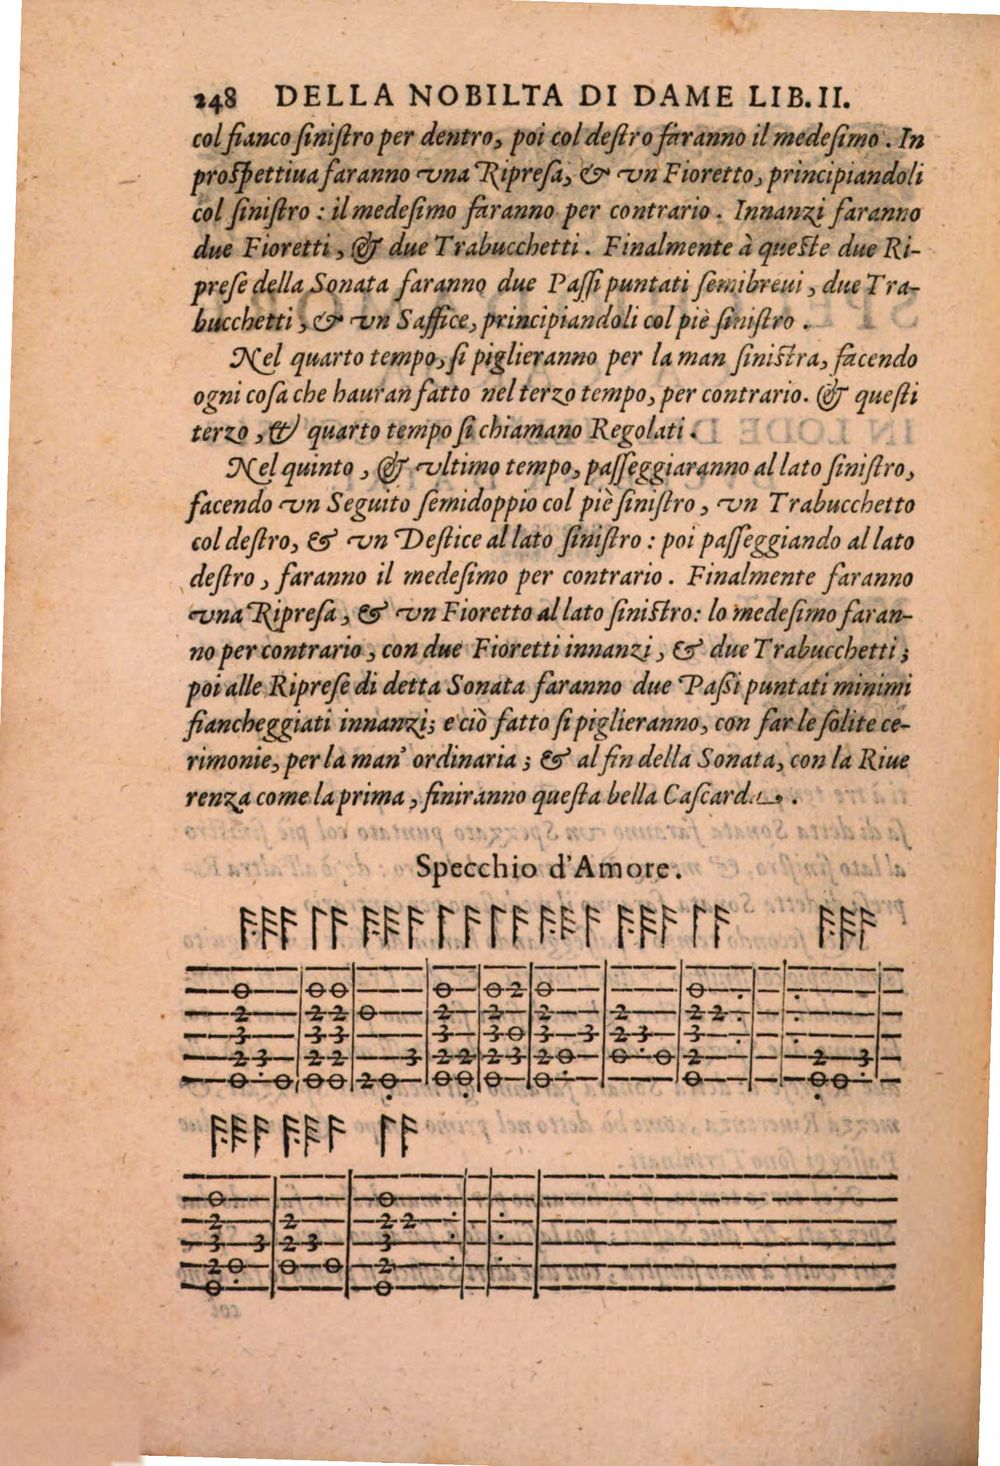 248 DELLA NOBILTA DI DAME LIB. II.
col fianco ſiniſtro per dentro, poi col deſtro faranno il medeſimo. In
proſpettiua faranno vna Ripreſa, & vn Fioretto, principiandoli
col ſiniſtro : il medeſimo faranno per contrario. Innanzi faranno
due Fioretti, & due Trabucchetti. Finalmente à queſte due Ri-
preſe della Sonata faranno due Paſſi puntati ſemibreui, due Tra-
bucchetti, & vn Saffice, principiandoli col piè ſiniſtro.
Nel quarto tempo, ſi piglieranno per la man ſiniſtra, facendo
ogni coſa che hauran fatto nel terzo tempo, per contrario. & queſti
terzo, & quarto tempo ſi chiamano Regolati.
Nel quinto, & vltimo tempo, paſſeggiaranno al lato ſiniſtro,
facendo vn Seguito ſemidoppio col piè ſiniſtro, vn Trabucchetto
col deſtro, & vn Deſtice al lato ſiniſtro : poi paſſeggiando al lato
deſtro, faranno il medeſimo per contrario. Finalmente faranno
vna Ripreſa, & vn Fioretto al lato ſiniſtro: lo medeſimo faran-
no per contrario, con due Fioretti innanzi, & due Trabucchetti;
poi alle Ripreſe di detta Sonata faranno due Paſſi puntati minimi
fiancheggiati innanzi; e ciò fatto ſi piglieranno, con far le ſolite ce-
rimonie, per la man' ordinaria; & al fin della Sonata, con la Riue
renza come la prima, finiranno queſta bella Caſcarda.
Specchio d'Amore.
0 0 0 0 0 2 0 0
2 2 2 0 2 2 2 2 2 2
3 3 3 3 3 0 3 3 2 3 3
2 3 2 2 3 2 2 2 3 2 0 0 0 2 2 3
0 0 0 0 2 0 0 0 0 0 0 0 0
0 0
2 2 2 2
3 3 2 3 3
2 0 0 0 2
0 0